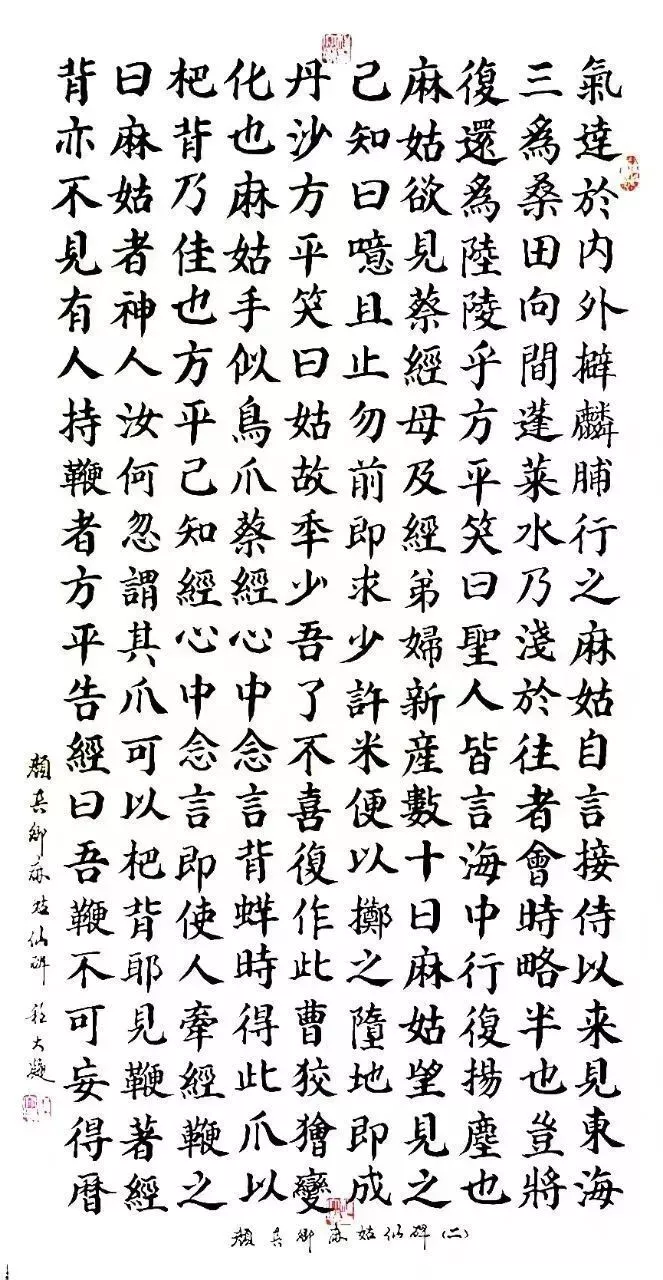 氣達於内外擗麟脯行之麻姑自言接侍以来見東海
三爲桑田向間蓬萊水乃淺於往者會時略半也豈將
復還爲陸陵乎方平笑曰聖人皆言海中行復揚塵也
麻姑欲見蔡經母及經弟婦新産數十日麻姑望見之
己知曰噫且止勿前即求少許米便以擲之墮地即成
丹沙方平笑曰姑故秊少吾了不喜復作此曹狡獪變
化也麻姑手似鳥爪蔡經心中念言背蛘時得此爪以
杷背乃佳也方平己知經心中念言即使人牽經鞭之
曰麻姑者神人汝何忽謂其爪可以杷背耶見鞭著經
背亦不見有人持鞭者方平告經曰吾鞭不可妄得曆
顏真卿麻姑仙碑
顏真卿麻姑仙碑(二)